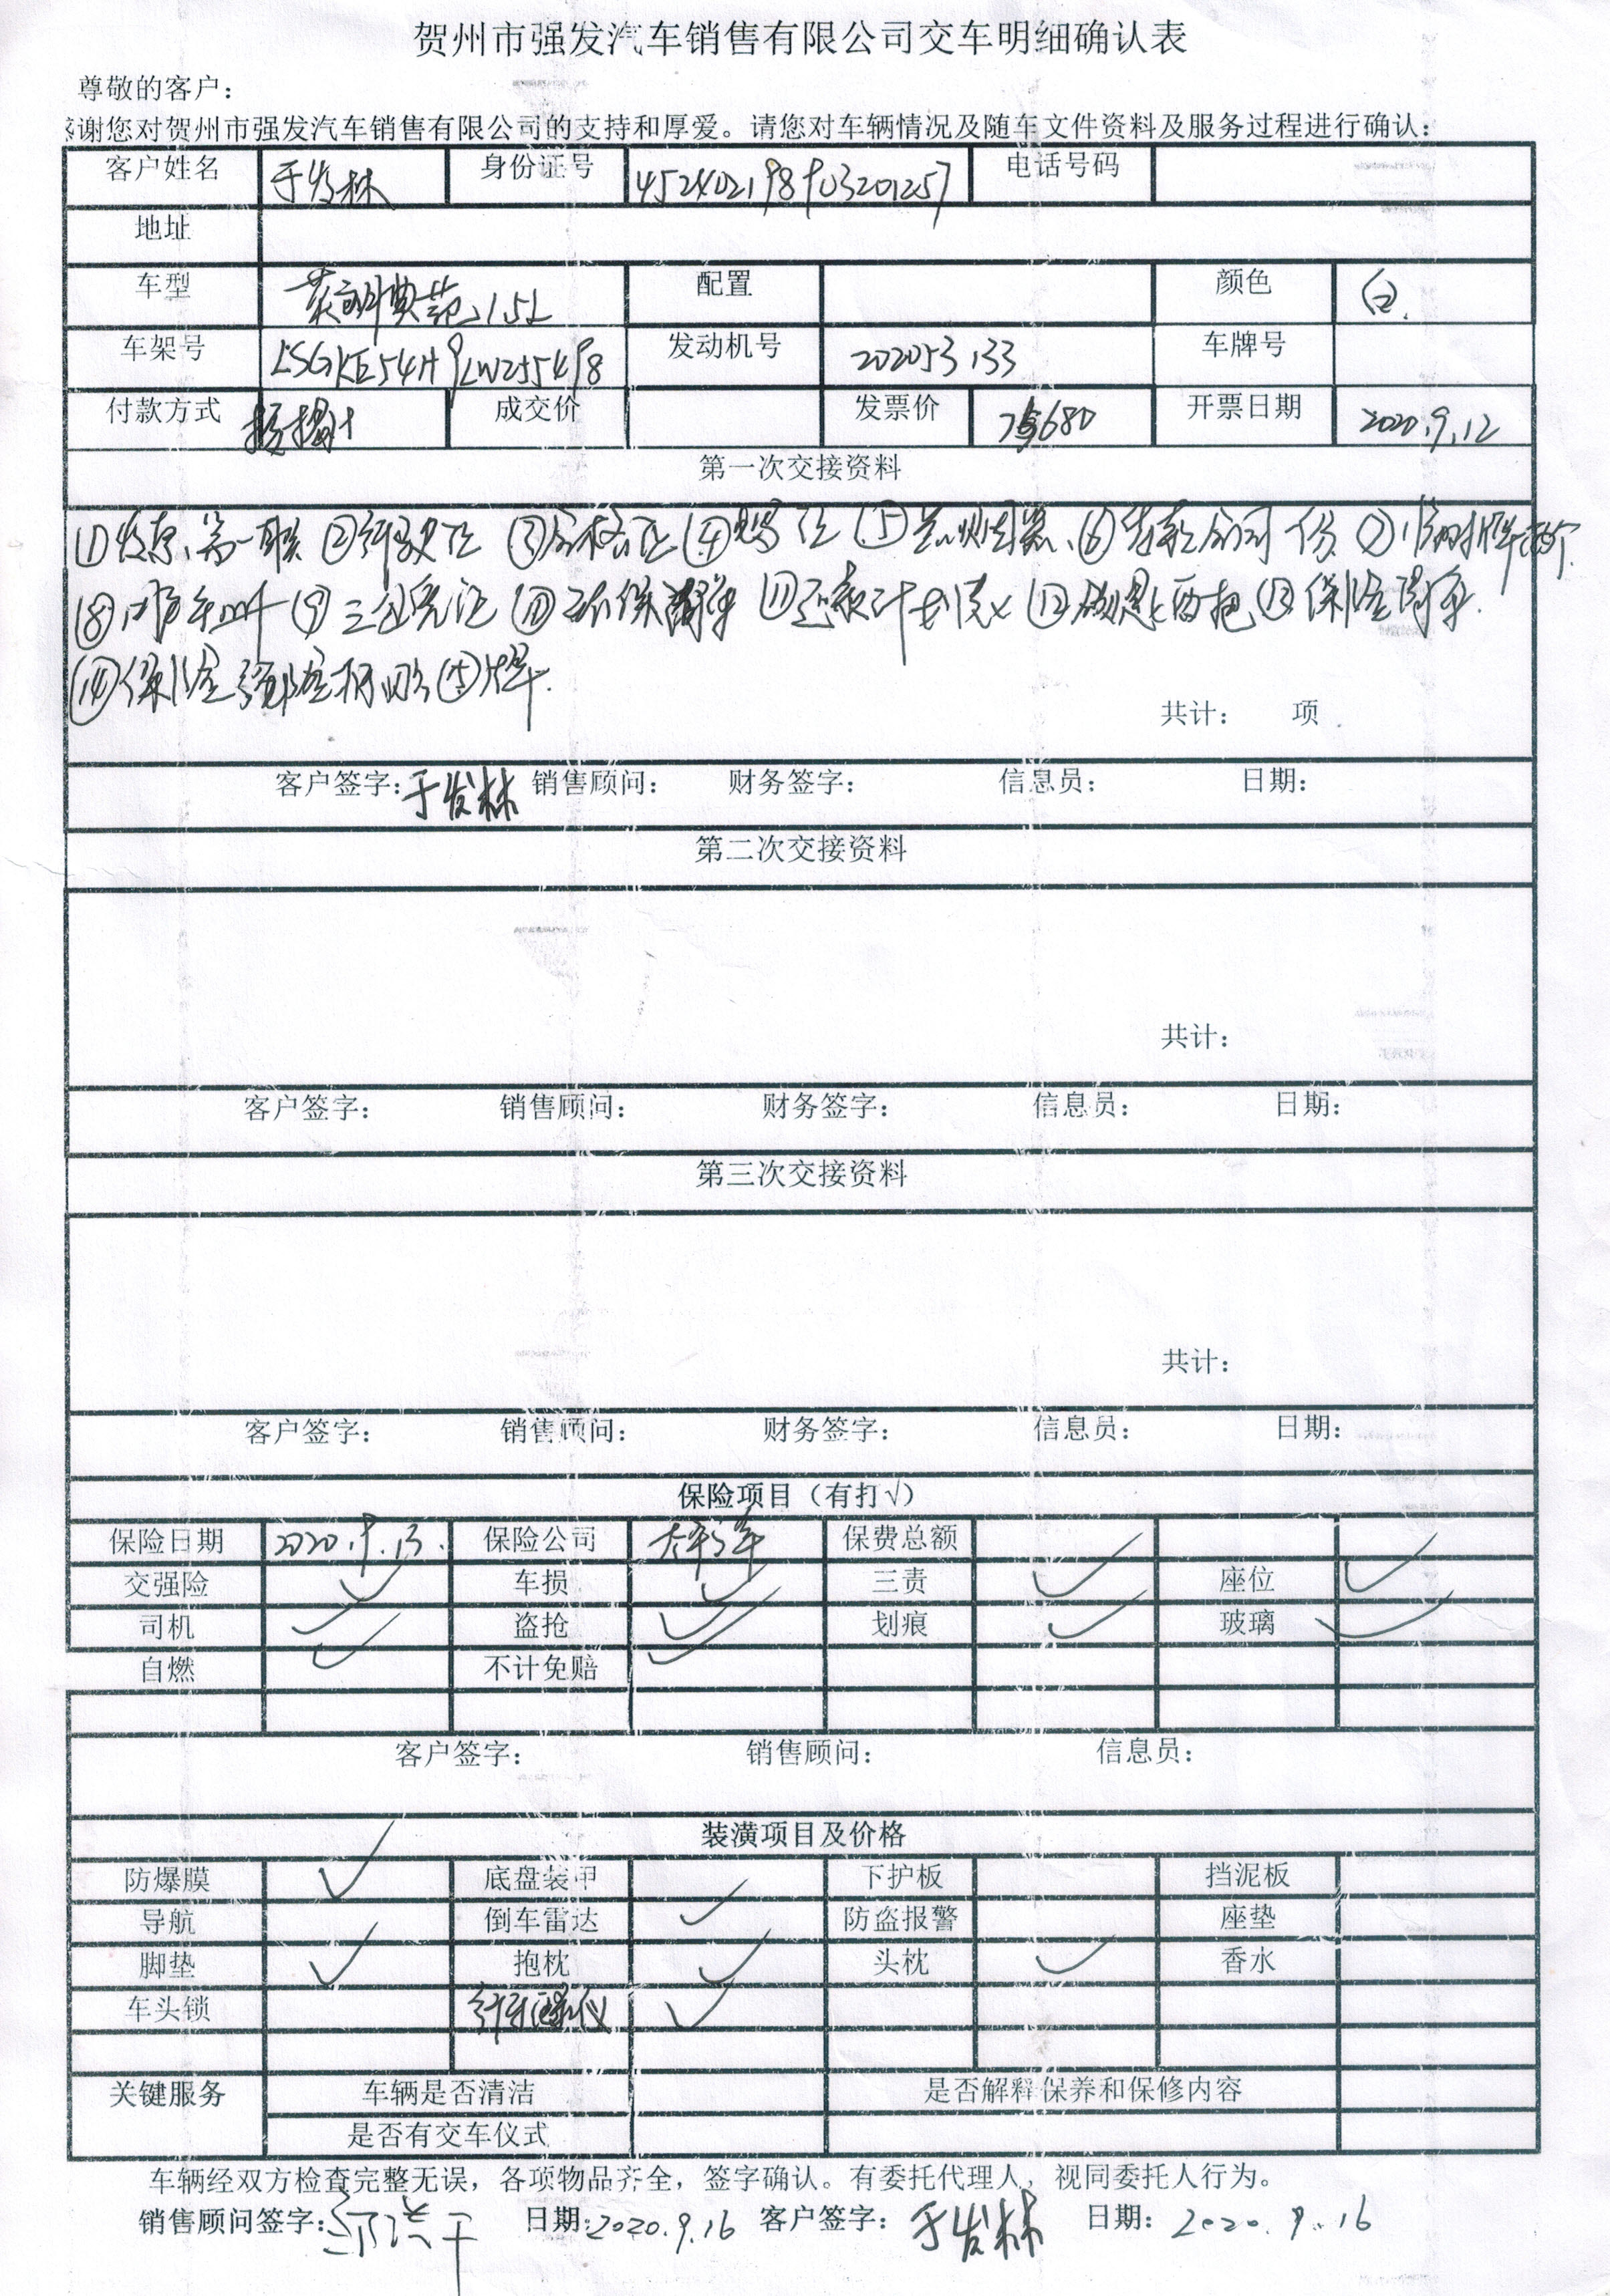 贺州市强发汽车销售有限公司交车明细确认表
尊敬的客户：
感谢您对贺州市强发汽车销售有限公司的支持和厚爱。请您对车辆情况及随车文件资料及服务过程进行确认：
客户姓名 于发林 身份证号 452402198903201257 电话号码
地址
车型 英朗典范1.5L 配置 颜色 白
车架号 LSGKE54H9LW255498 发动机号 202053133 车牌号
付款方式 按揭 成交价 发票价 开票日期 2020.9.12
第一次交接资料
①发票、第一联 ③合格证 ⑤点烟器 ⑥ 合同一份 ⑦
⑧ ⑨三包凭证 ⑩环保清单 ⑪还款计划表 ⑫ 两把 ⑬保险清单
⑭保险 ⑮
共计： 项
客户签字：于发林 销售顾问： 财务签字： 信息员： 日期：
第二次交接资料
共计：
客户签字： 销售顾问： 财务签字： 信息员： 日期：
第三次交接资料
共计：
客户签字： 销售顾问： 财务签字： 信息员： 日期：
保险项目（有打√）
保险日期 2020.9.13. 保险公司 太平洋 保费总额
交强险 √ 车损 √ 三责 √ 座位 √
司机 √ 盗抢 √ 划痕 √ 玻璃 √
自燃 √ 不计免赔 √
客户签字： 销售顾问： 信息员：
装潢项目及价格
防爆膜 √ 底盘装甲 下护板 挡泥板
导航 倒车雷达 √ 防盗报警 座垫
脚垫 √ 抱枕 √ 头枕 √ 香水
车头锁 行车记录仪 √
关键服务 车辆是否清洁 是否解释保养和保修内容
是否有交车仪式
车辆经双方检查完整无误，各项物品齐全，签字确认。有委托代理人，视同委托人行为。
销售顾问签字： 日期：2020.9.16 客户签字：于发林 日期：2020.9.16